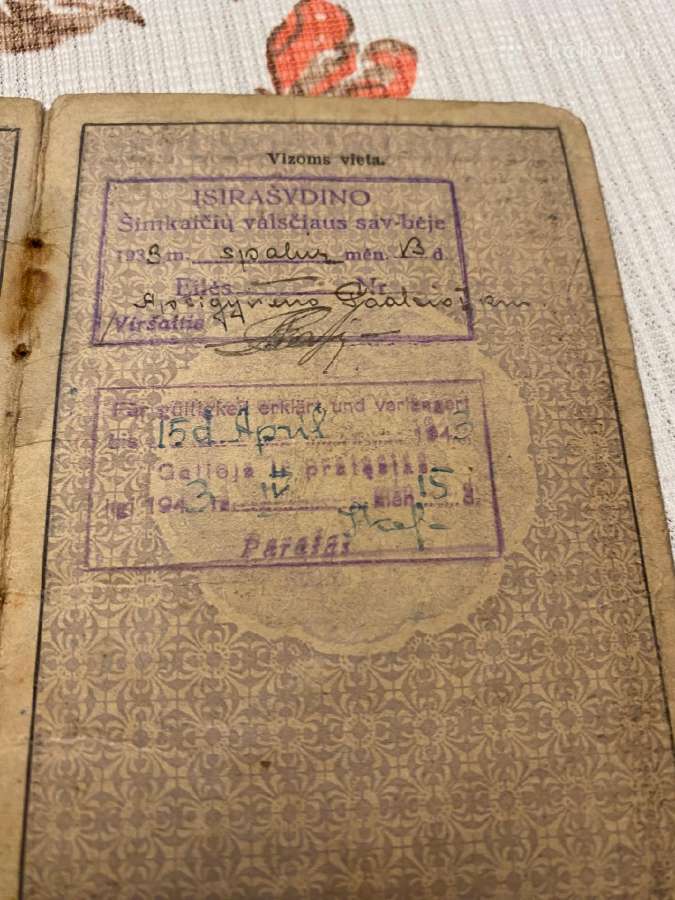 Vizoms vieta.
ĮSIRAŠYDINO
Šimkaičių valsčiaus sav-bėje
1938 m. spalių mėn. 13 d.
Eilės Nr
Apsigyveno
Viršaitis
Für gültigkeit erklärt und verlängert
bis 15d April 1943
Galioja ir pratęstas
ligi 1943 m. IV mėn. 15 d.
Parašai